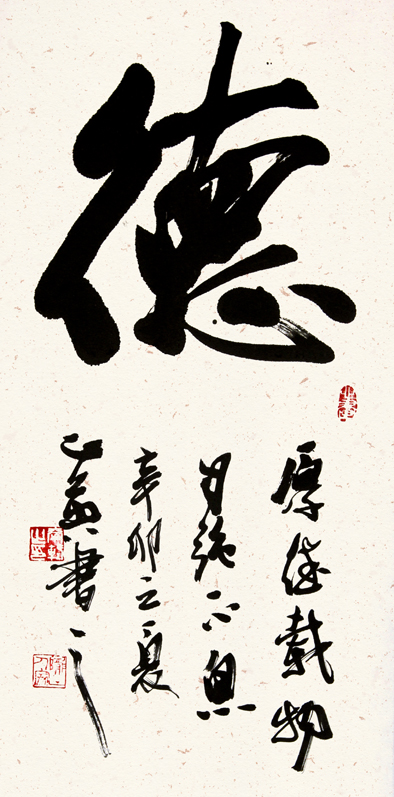 德
厚德載物
自強不息
辛卯之夏
書之